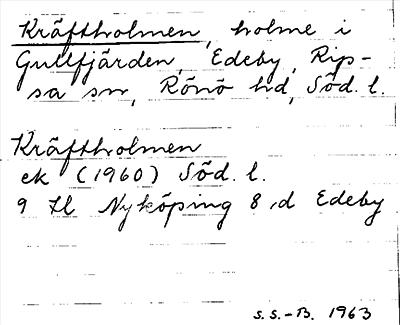 Kräftholmen, holme i
Gullfjärden, Edeby, Rip-
sa sn, Rönö hd, Söd. l.
Kräftholmen
ek (1960) Söd. l.
9 Nyköping 8 d Edeby
S.S.-B. 1963